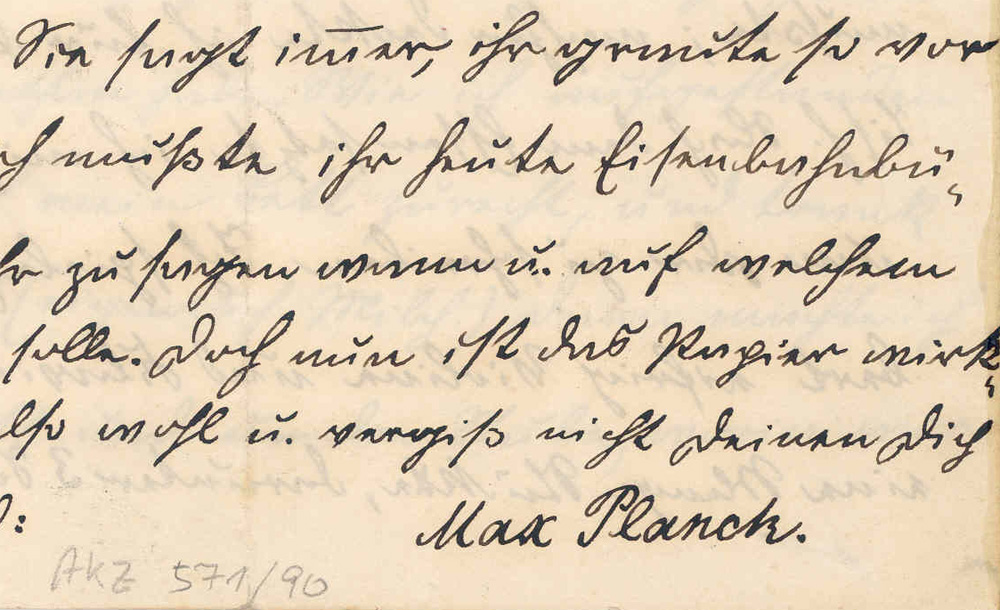 Sie sagt im̅er, ihr graute so vor
ch mußte ihr heute Eisenbahnbü-
hr zu sagen wann u. auf welchem
solle. Doch nun ist das Papier wirk-
lso wohl u. vergiß nicht Deinen Dich
:
Max Planck.
AkZ 571/90